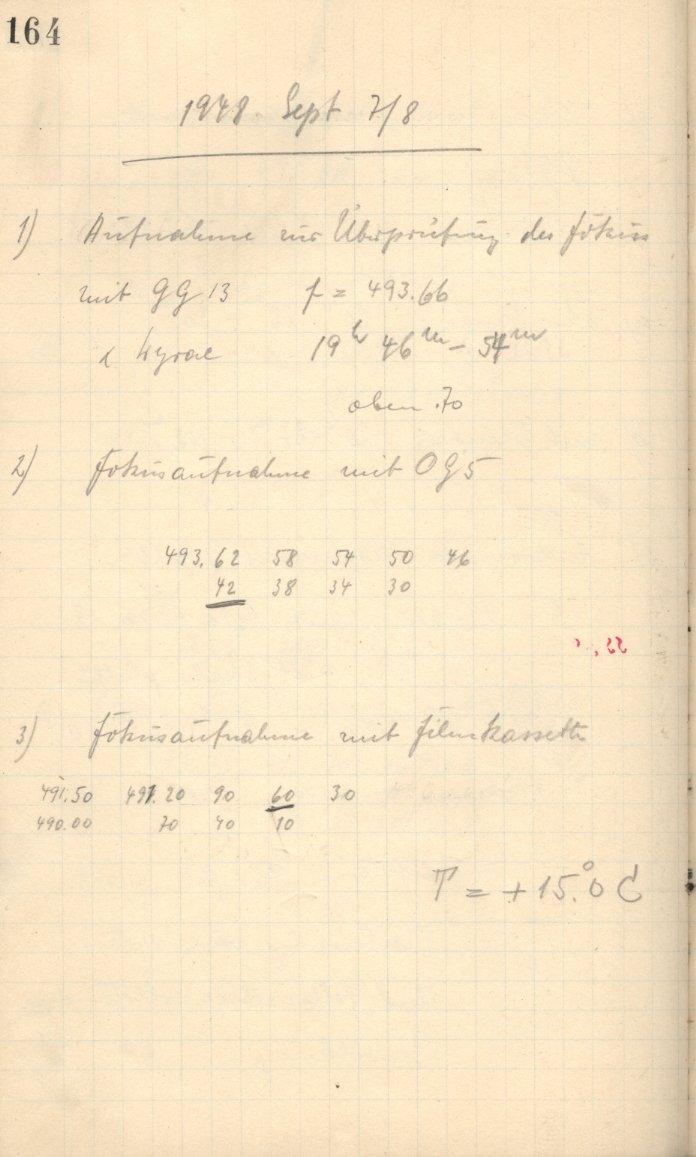 164
1948. Sept 7/8
1) Aufnahme zur Überprüfung des Fokus
mit GG 13 f = 493.66
α Lyrae 19h 46m – 54m
oben .70
2) Fokusaufnahme mit OG5
493.62 58 54 50 46
42 38 34 30
3) Fokusaufnahme mit Filmkassette
491.50 491.20 90 60 30
490.00 70 40 10
T = +15.°0 C